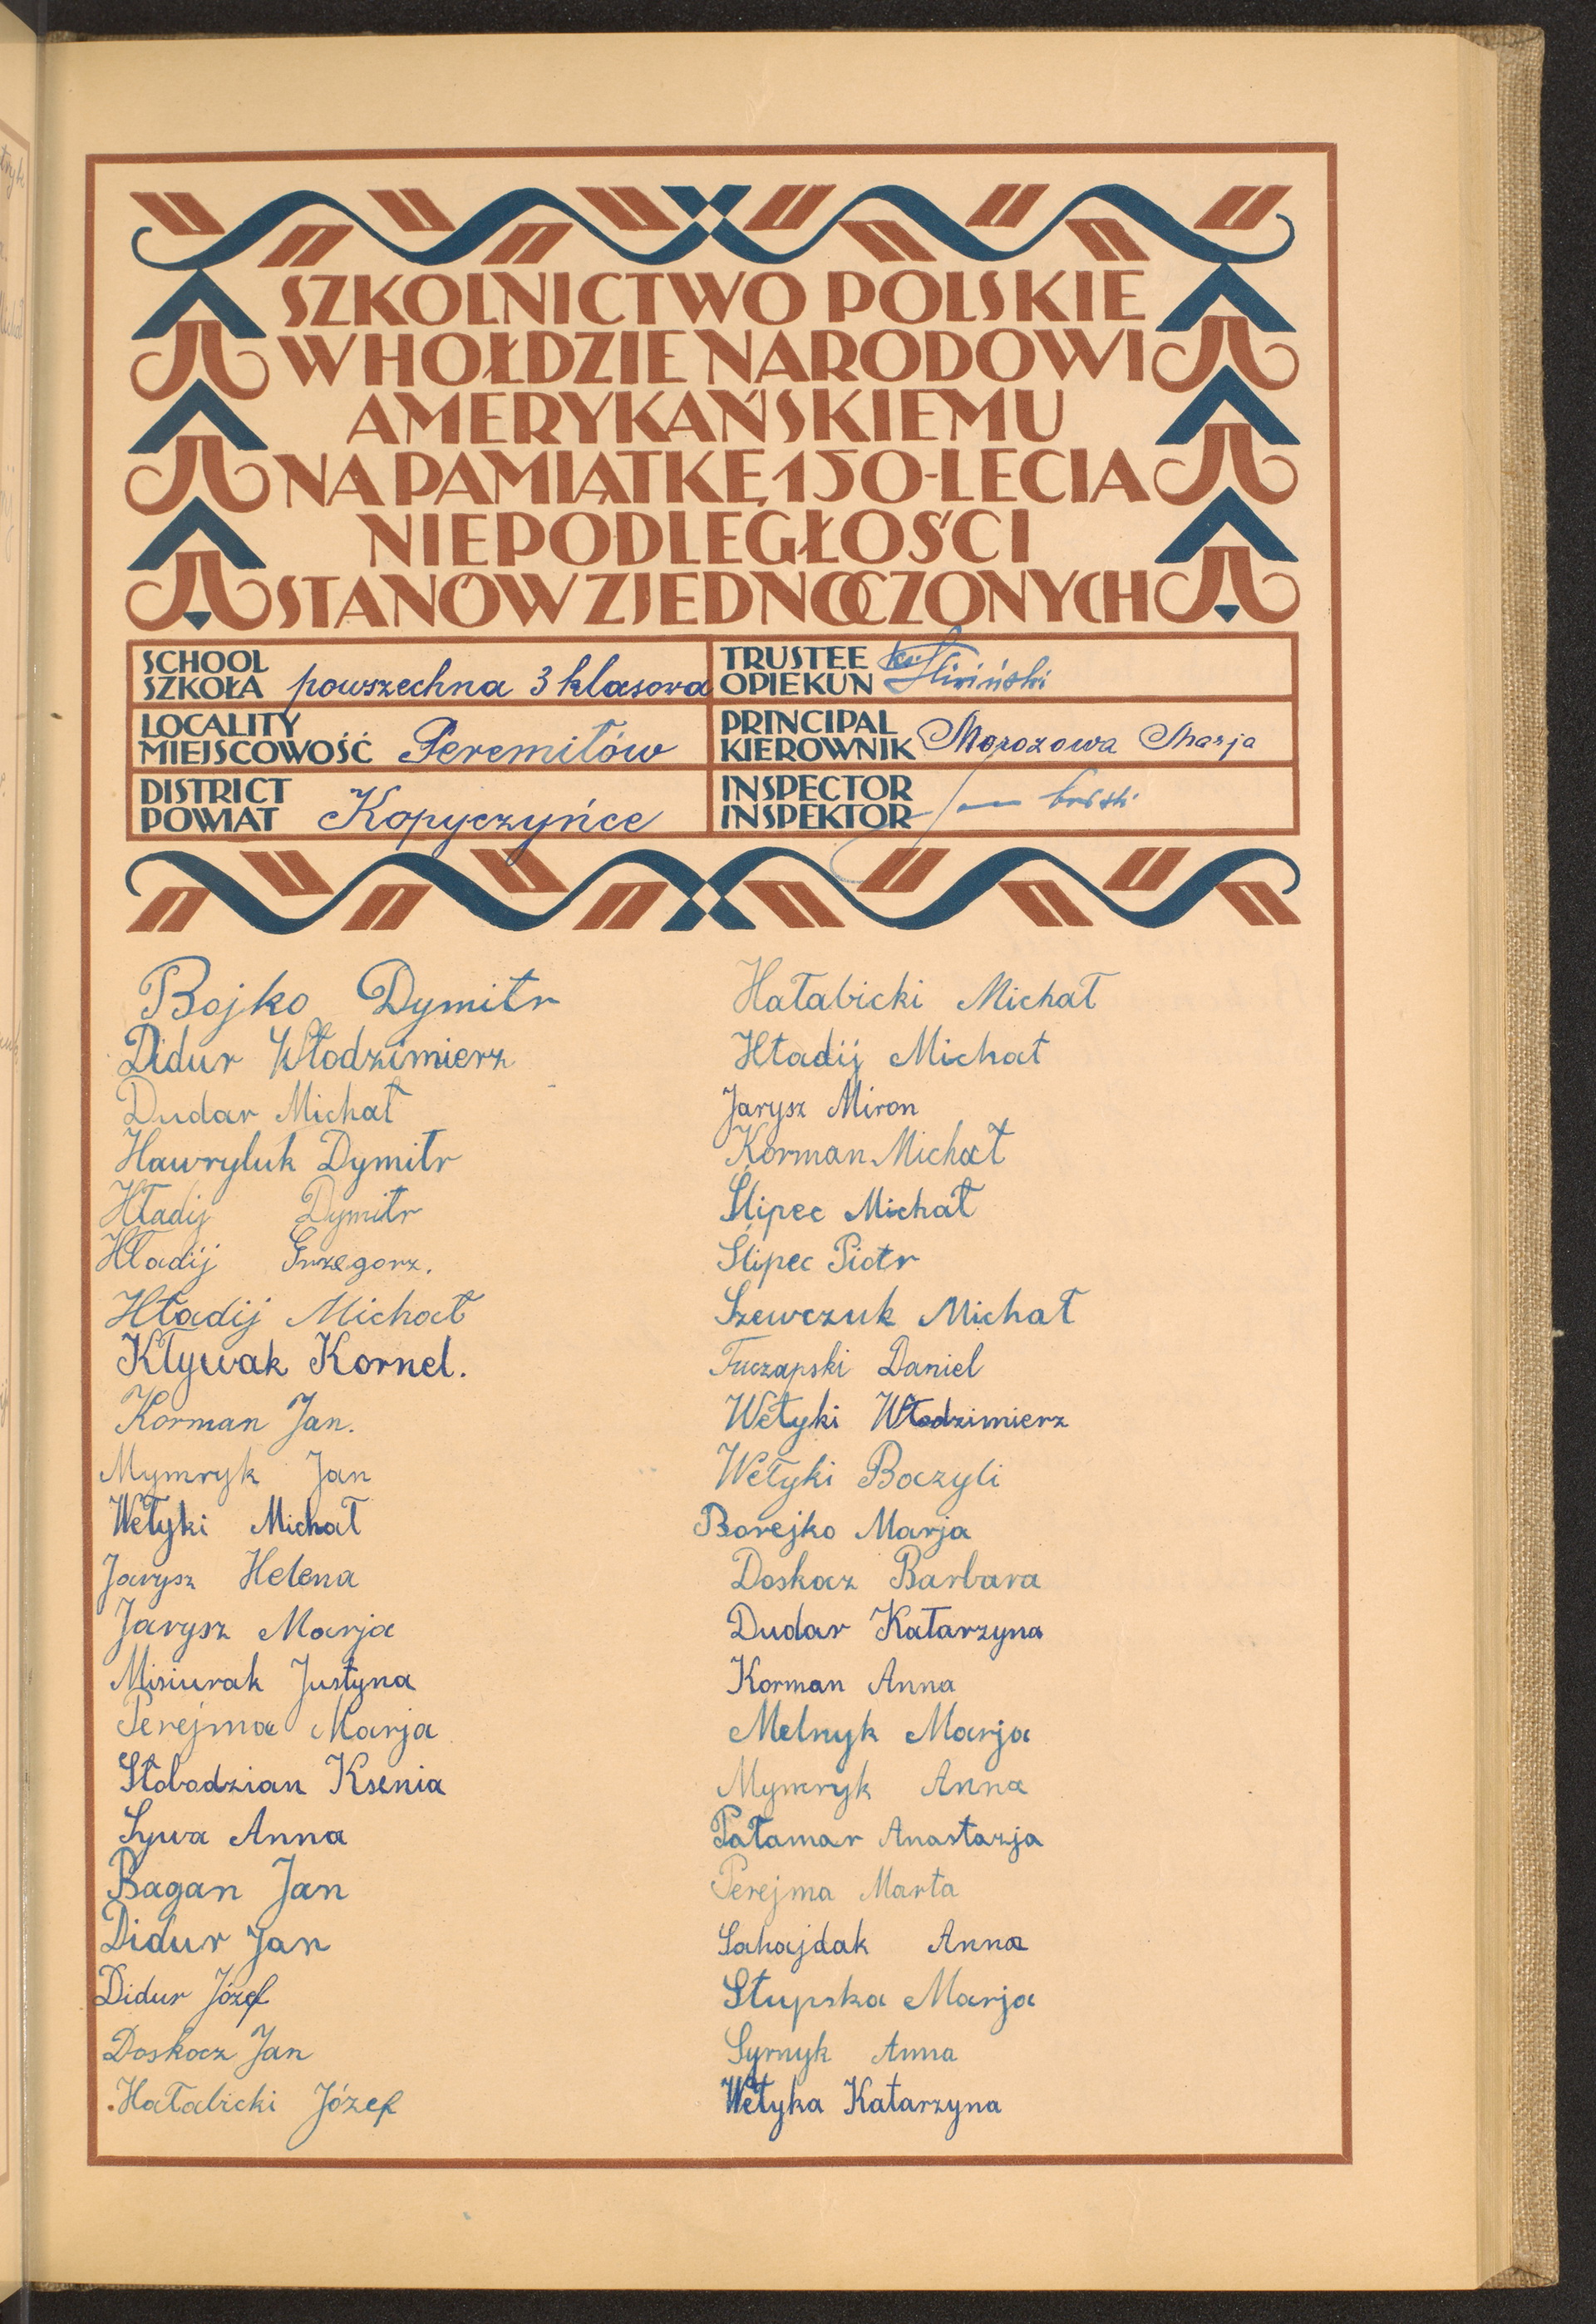 SZKOLNICTWO POLSKIE
W HOŁDZIE NARODOWI
AMERYKAŃSKIEMU
NA PAMIĄTKĘ 150-LECIA
NIEPODLEGŁOŚCI
STANÓW ZJEDNOCZONYCH
SCHOOL
SZKOŁA powszechna 3 klasowa
LOCALITY
MIEJSCOWOŚĆ Peremiłów
DISTRICT
POWIAT Kopyczyńce
TRUSTEE
OPIEKUN
PRINCIPAL
KIEROWNIK Morozowa Marja
INSPECTOR
INSPEKTOR
Bojko Dymitr
Didur Włodzimierz
Dudar Michał
Hawryluk Dymitr
Hładij Dymitr
Hładij Grzegorz.
Hładij Michał
Kływak Kornel.
Korman Jan.
Mymryk Jan
Wełyki Michał
Jarysz Helena
Jarysz Marja
Misiurak Justyna
Perejma Marja
Słobodzian Ksenia
Sywa Anna
Bagan Jan
Didur Jan
Didur Józef
Doskocz Jan
Hałabicki Józef
Hałabicki Michał
Hładij Michał
Jarysz Miron
Korman Michał
Ślipec Michał
Ślipec Piotr
Szewczuk Michał
Tuczapski Daniel
Wełyki Włodzimierz
Wełyki Baczyli
Borejko Marja
Doskocz Barbara
Dudar Katarzyna
Korman Anna
Melnyk Marja
Mymryk Anna
Pałamar Anastazja
Perejma Marta
Sahajdak Anna
Słupska Marja
Syrnyk Anna
Wełyka Katarzyna